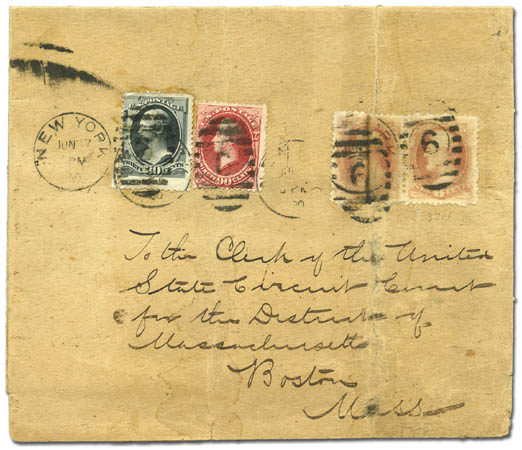 NEW YORK
JUN 17
PM
U.S. POSTAGE
30
POSTAGE
90 CENTS
6
6
To the Clerk of the United
State Circuit Court
for the District of
Massachusetts
Boston
Mass